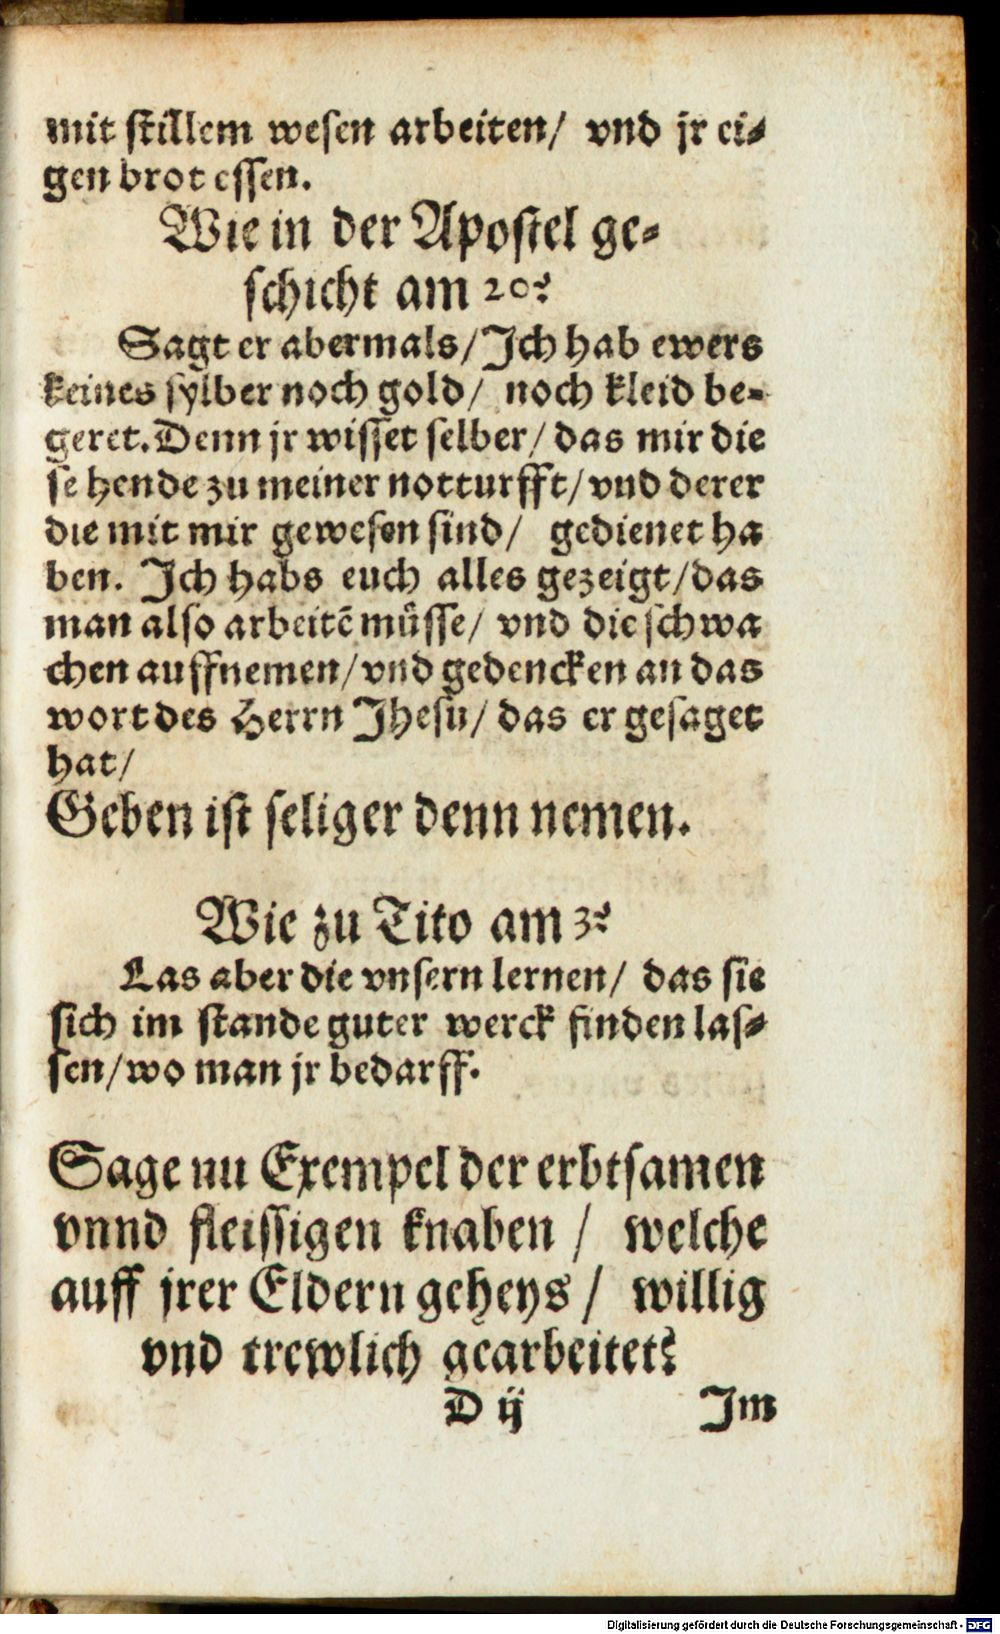 mit stillem wesen arbeiten/ vnd jr ei⸗
gen brot essen.
Wie in der Apostel ge⸗
schicht am 20?
Sagt er abermals/ Ich hab ewers
keines sylber noch gold/ noch kleid be⸗
geret. Denn jr wisset selber/ das mir die
se hende zu meiner notturfft/ vnd derer
die mit mir gewesen sind/ gedienet ha
ben. Ich habs euch alles gezeigt/ das
man also arbeitẽ müsse/ vnd die schwa
chen auffnemen/ vnd gedencken an das
wort des Herrn Jhesu/ das er gesaget
hat/
Geben ist seliger denn nemen.
Wie zu Tito am 3?
Las aber die vnsern lernen/ das sie
sich im stande guter werck finden las⸗
sen/ wo man jr bedarff.
Sage nu Exempel der erbtsamen
vnnd fleissigen knaben / welche
auff jrer Eldern geheys / willig
vnd trewlich gearbeitet?
D ij Im
Digitalisierung gefördert durch die Deutsche Forschungsgemeinschaft - DFG